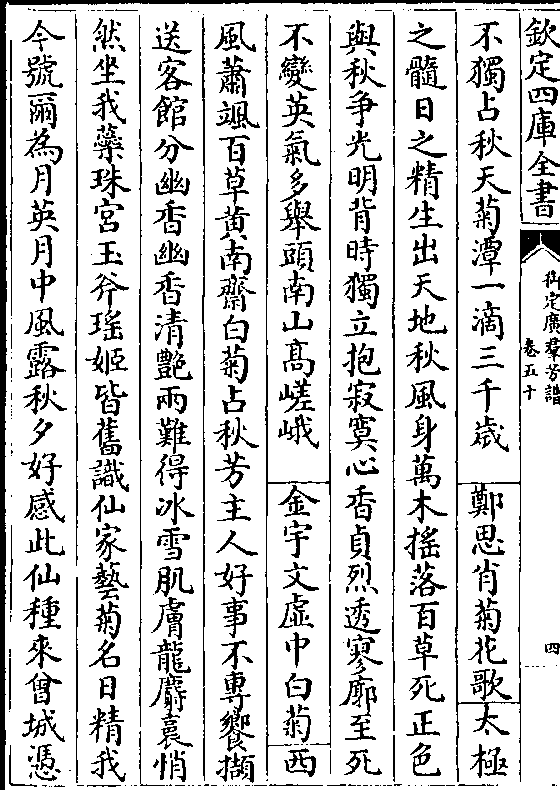 欽定四庫全書
御定廣羣芳譜
卷五十
四
不獨占秋天菊潭一滴三千歳 鄭思肖菊花歌 太極
之髓日之精生出天地秋風身萬木摇落百草死正色
與秋争光明背時獨立抱寂寞心香貞烈透寥廓至死
不變英氣多舉頭南山髙嵯峨 金宇文虛中白菊 西
風蕭颯百草黄南齋白菊占秋芳主人好事不專饗擷
送客館分幽香幽香清艶兩難得冰雪肌膚龍麝裛悄
然坐我蘂珠宮玉斧瑶姬皆舊識仙家藝菊名日精我
今號爾為月英月中風露秋夕好感此仙種來曾城憑